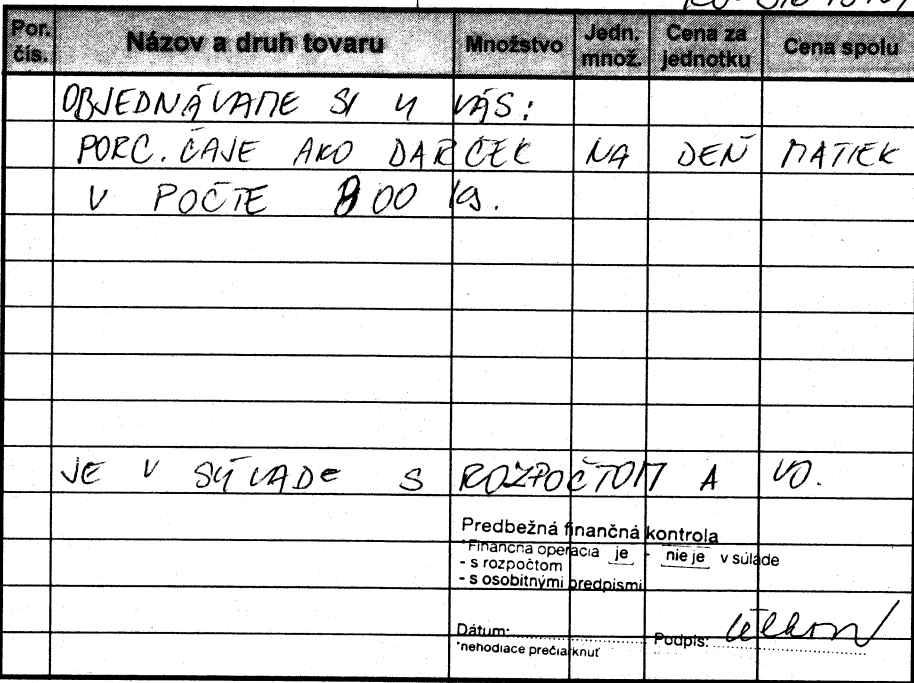 Por. čís. Názov a druh tovaru Množstvo Jedn. množ. Cena za jednotku Cena spolu
OBJEDNÁVAME SI U VÁS:
PORC. ČAJE AKO DARČEK NA DEŇ MATIEK
V POČTE 800 ks.
JE V SÚLADE S ROZPOČTOM A VO.
Predbežná finančná kontrola
*Finančná operácia je - nie je v súlade
- s rozpočtom
- s osobitnými predpismi
Dátum: Podpis:
*nehodiace prečiarknuť